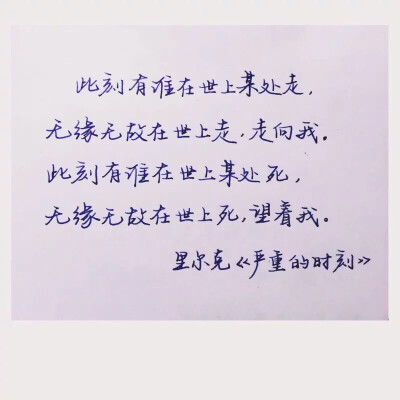 此刻有谁在世上某处走，
无缘无故在世上走，走向我。
此刻有谁在世上某处死，
无缘无故在世上死，望着我。
里尔克《严重的时刻》